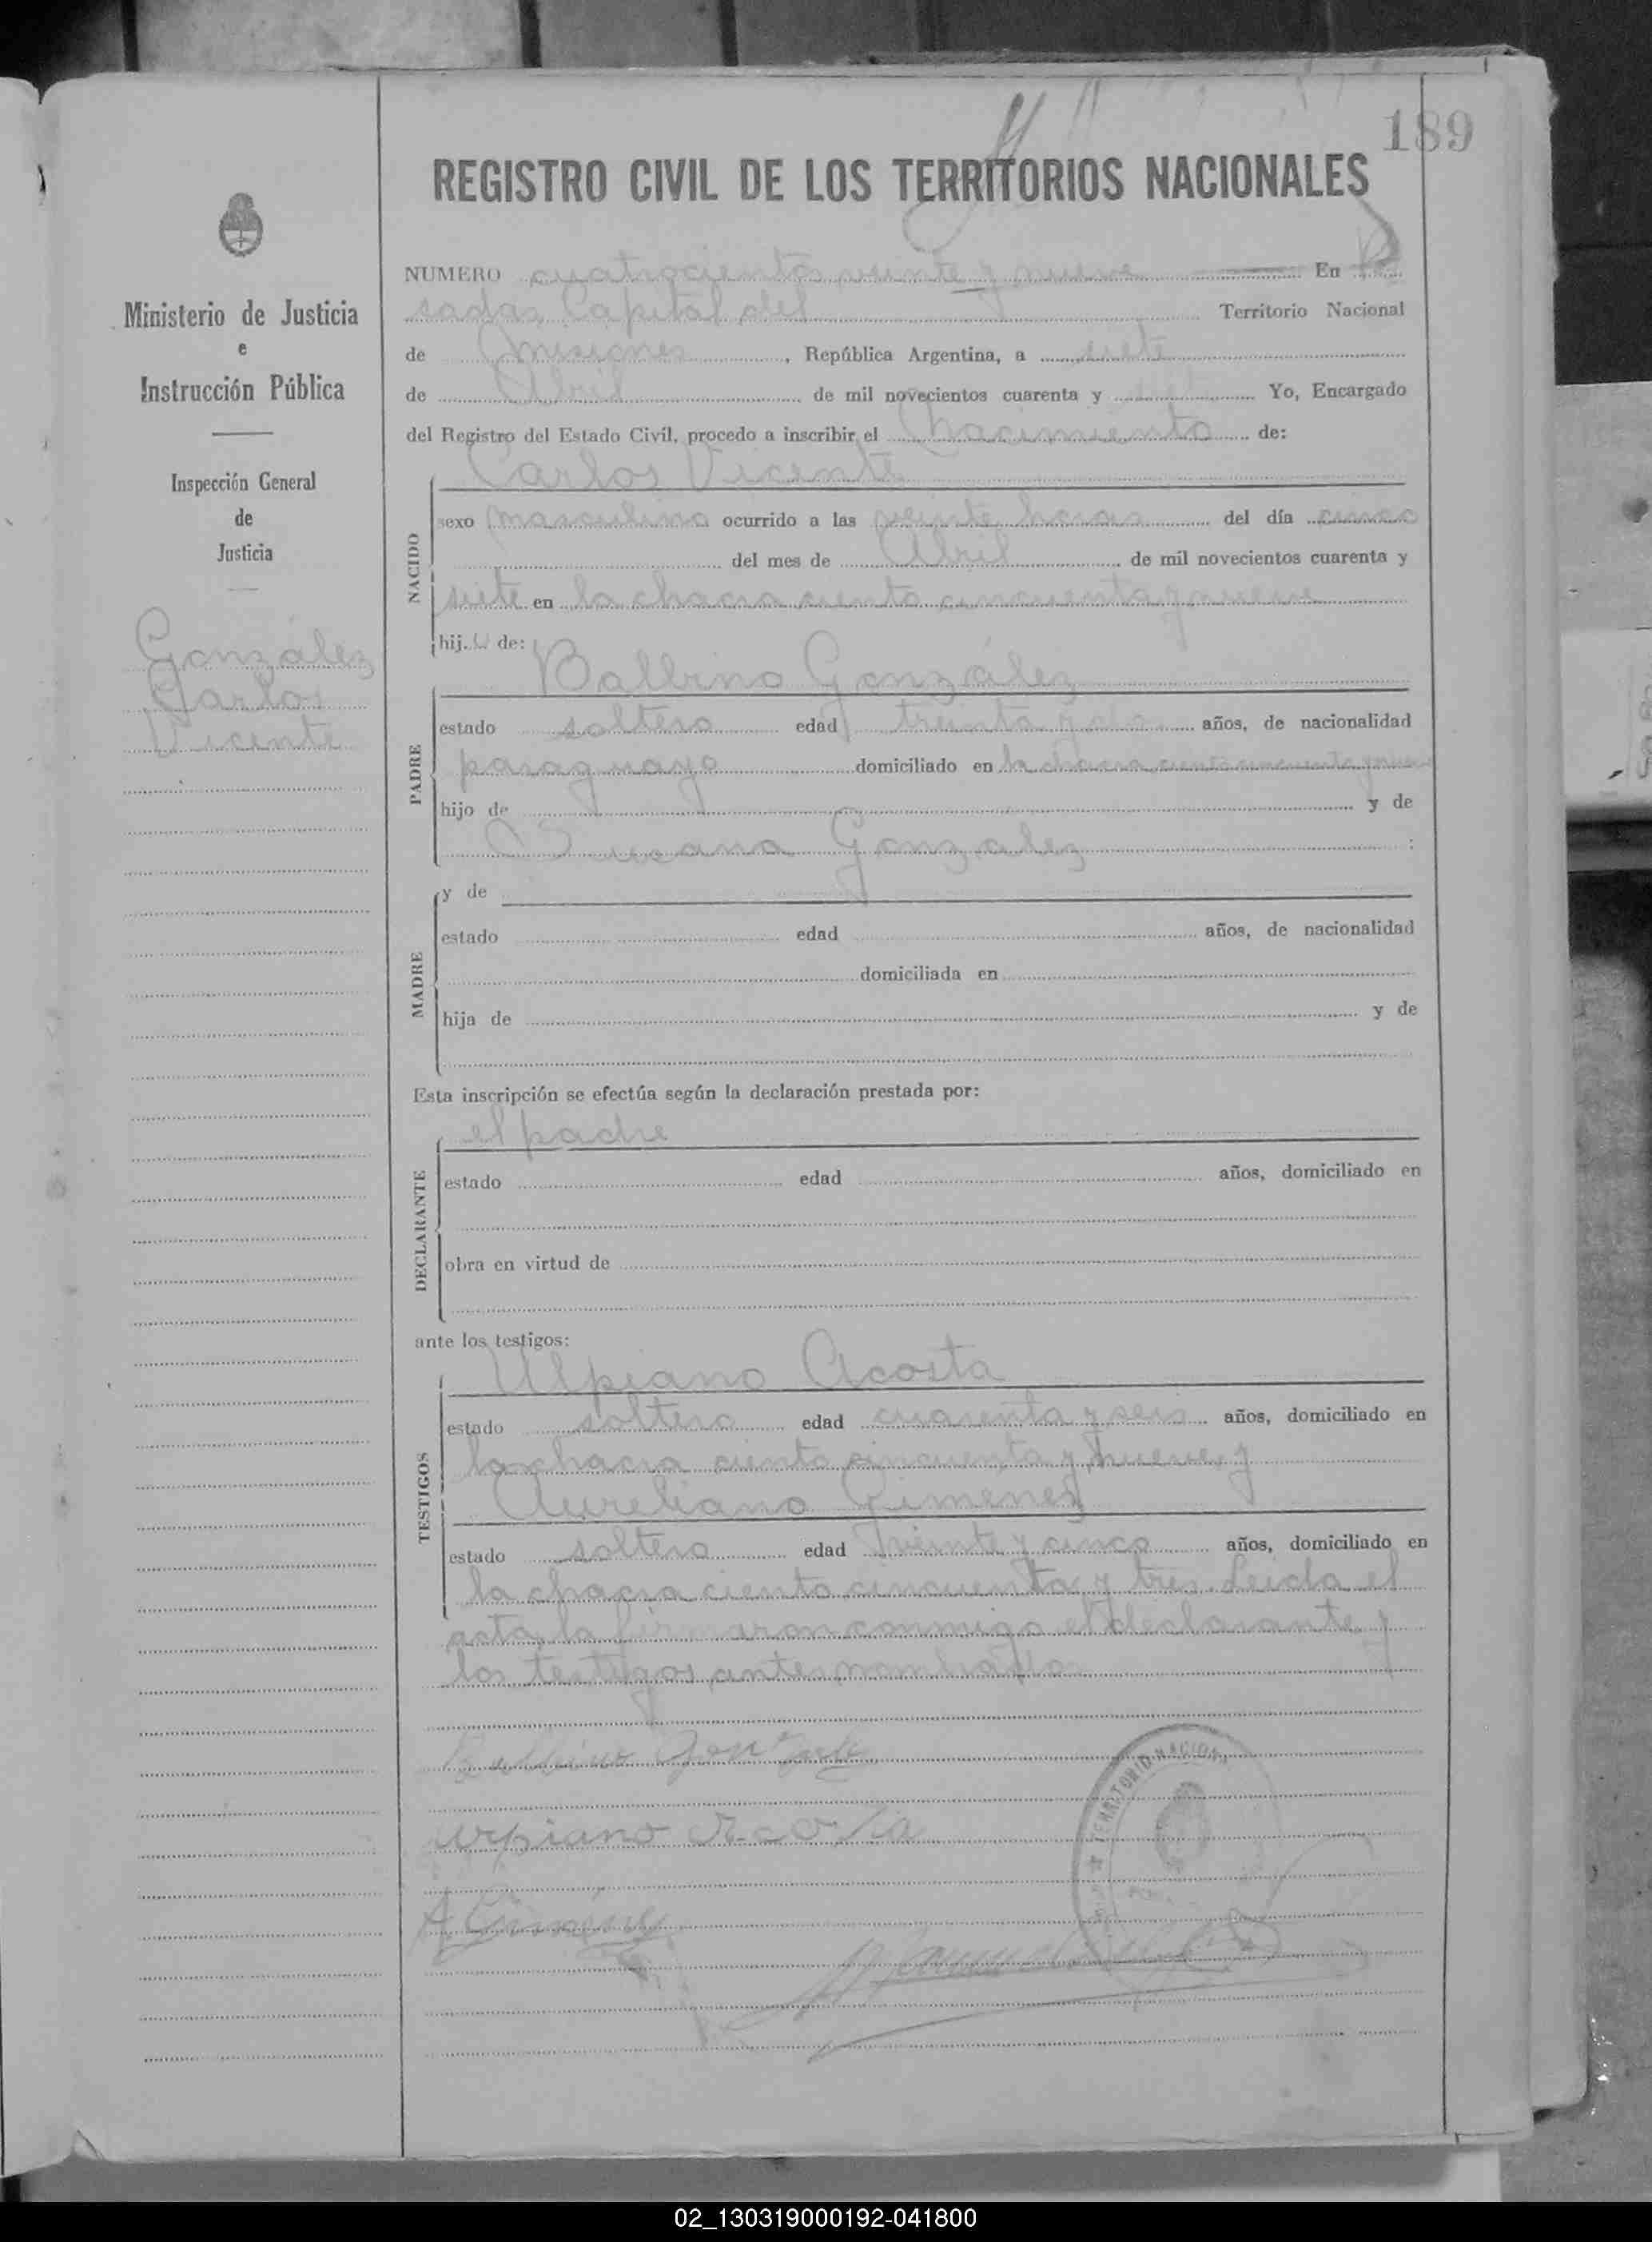 189
REGISTRO CIVIL DE LOS TERRITORIOS NACIONALES
Ministerio de Justicia
e
Instrucción Pública
Inspección General
de
Justicia
González
Carlos
Vicente
NUMERO cuatrocientos veinte y nueve En Po
sadas, Capital del Territorio Nacional
de Misiones, República Argentina, a siete
de Abril de mil novecientos cuarenta y Yo, Encargado
del Registro del Estado Civil, procedo a inscribir el Nacimiento de:
Carlos Vicente
NACIDO
sexo masculino ocurrido a las veinte horas del día cinco
del mes de Abril de mil novecientos cuarenta y
siete en la chacra ciento cincuenta y nueve
hijo de:
Balbino González
PADRE
estado soltero edad treinta y años, de nacionalidad
paraguayo domiciliado en la chacra ciento cincuenta y nueve
hijo de y de
González
MADRE
y de
estado edad años, de nacionalidad
domiciliada en
hija de y de
Esta inscripción se efectúa según la declaración prestada por:
el padre
DECLARANTE
estado edad años, domiciliado en
obra en virtud de
ante los testigos:
Ulpiano Acosta
TESTIGOS
estado soltero edad cuarenta y seis años, domiciliado en
la chacra ciento cincuenta y nueve, y
Aureliano Gimenez
estado soltero edad veinte y cinco años, domiciliado en
la chacra ciento cincuenta y tres. Leida el
acta, la firmaron conmigo el declarante y
los testigos antes nombrados
Balbino Gonzalez
urpiano Acosta
A Giménez
TERRITORIO NACIONAL
02_130319000192-041800